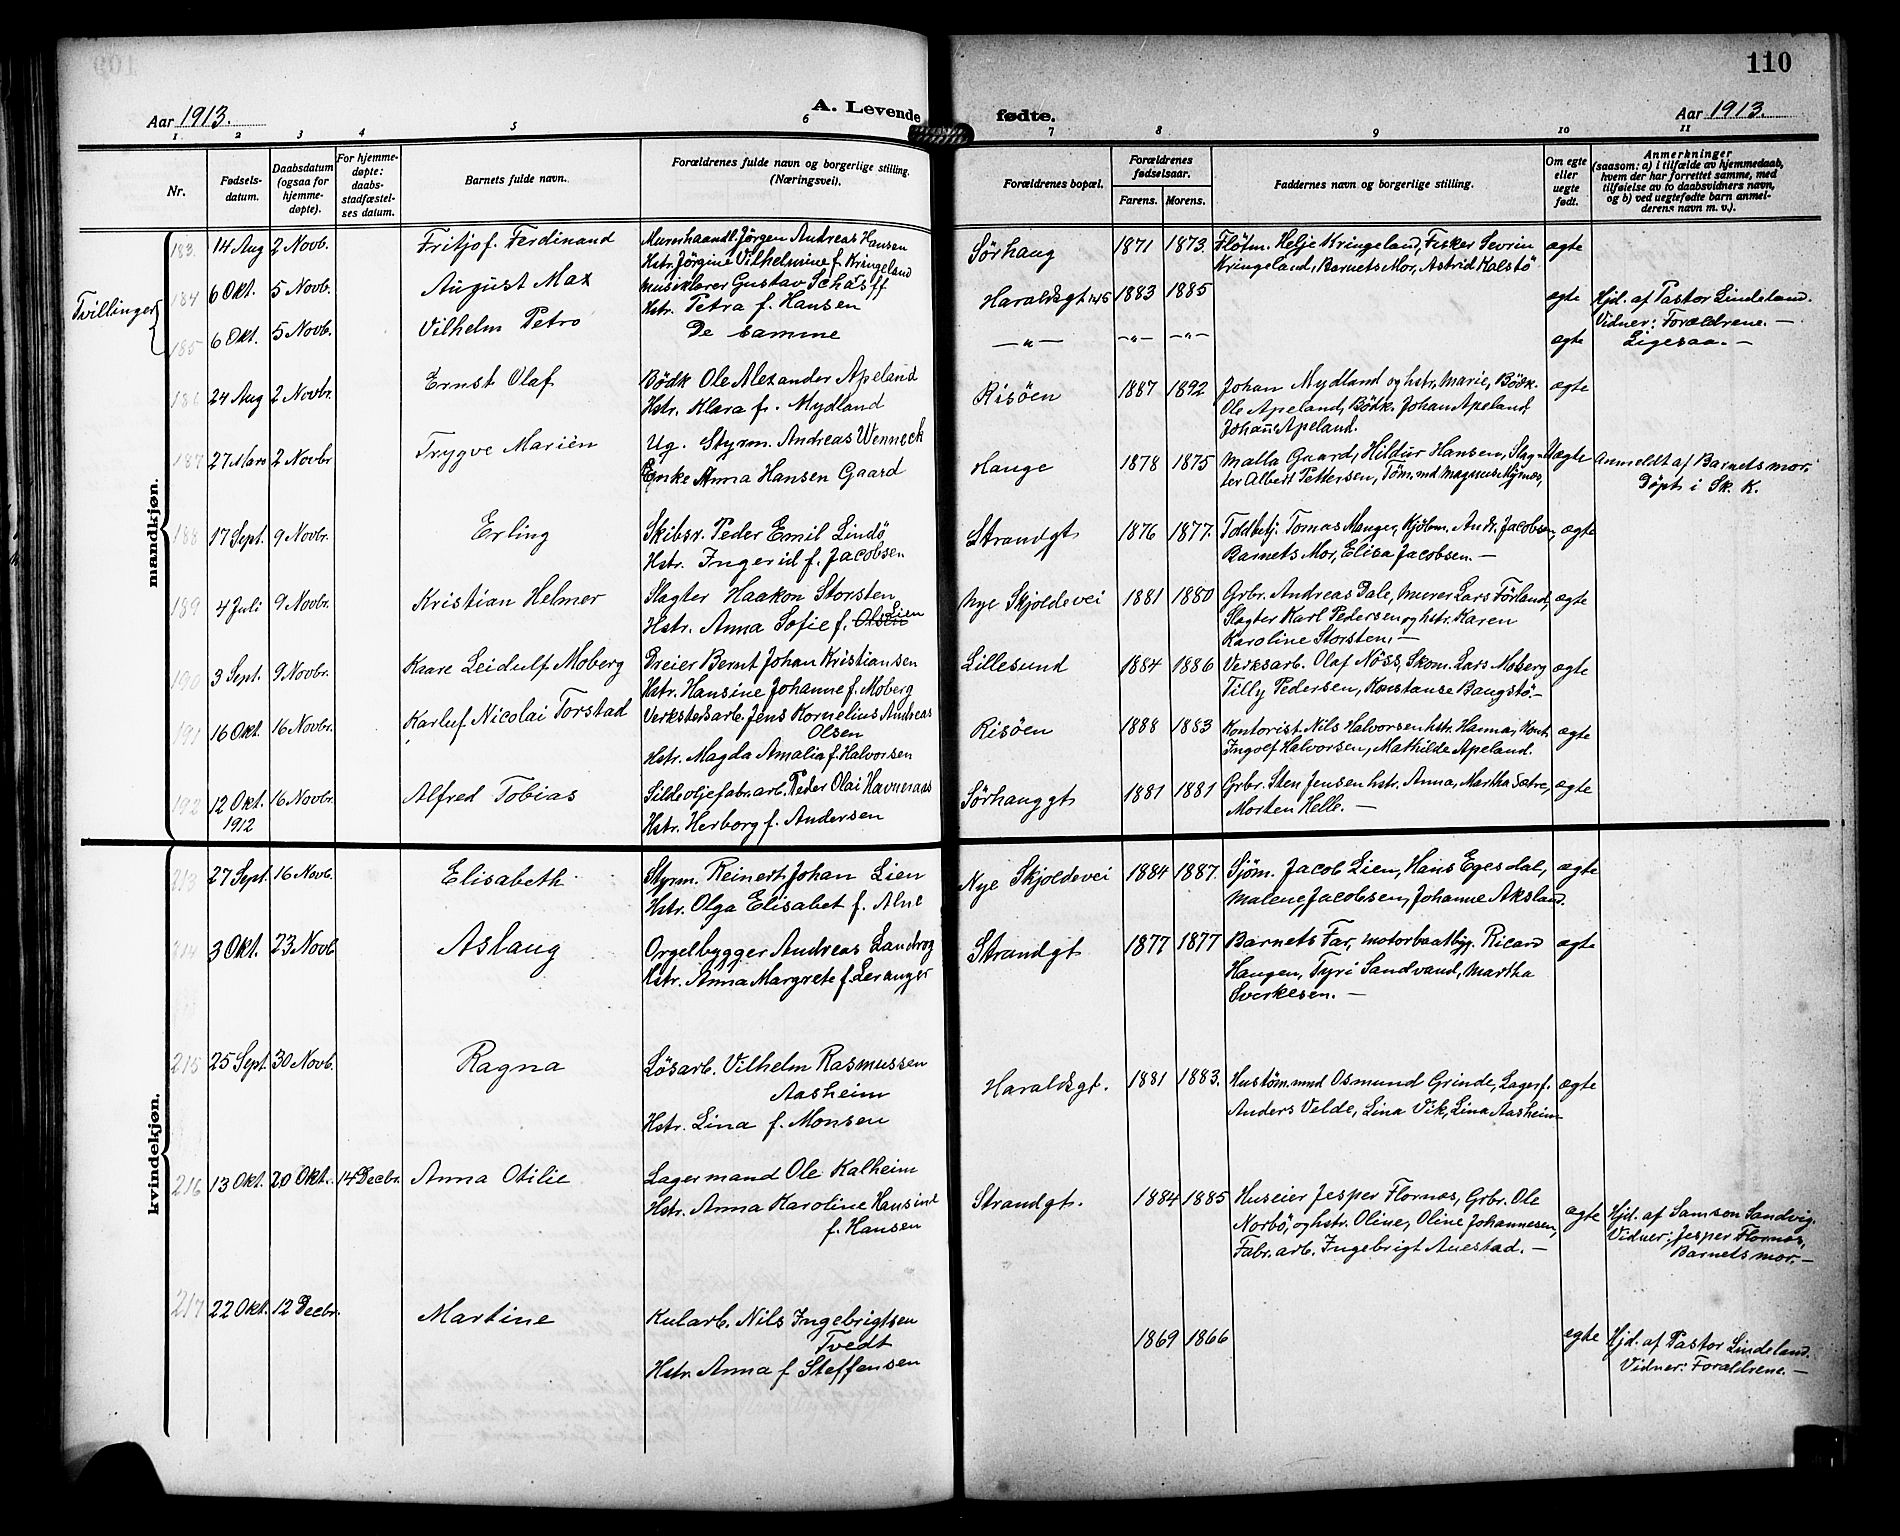 110
Aar 1913.
A. Levende fødte.
Aar 1913.
1 2 3 4 5 6 7 8 9 10 11
Nr.
Fødsels-
datum.
Daabsdatum
(ogsaa for
hjemme-
døpte).
For hjemme-
døpte:
daabs-
stadfæstel-
ses datum.
Barnets fulde navn.
Forældrenes fulde navn og borgerlige stilling.
(Næringsvei).
Forældrenes bopæl.
Forældrenes
fødselsaar.
Farens. Morens.
Faddernes navn og borgerlige stilling.
Om egte
eller
uegte
født.
Anmerkninger
(saasom: a) i tilfælde av hjemmedaab,
hvem der har forrettet samme, med
tilføielse av to daabsvidners navn,
og b) ved uegtefødte barn anmel-
derens navn m. v.).
mandkjøn.
183 14 Aug 2 Novb. Fritjof Ferdinand Murnhaandl. Jörgen Andreas Hansen Sørhaug 1871 1873 Fløtm. Helje Kringeland, Fisker Sevrin ægte
Hstr. Jörgine Vilhelmine f. Kringeland Kringeland, Barnets Mor, Astrid Kalstö
Tvillinger
184 6 Okt. 5 Novb. August Max Musiklærer Gustav Schärff Haraldsgt 145 1883 1885 ægte Hjd. af Pastor Lindeland.
Hstr. Petra f. Hansen Vidner: Forældrene. —
185 6 Okt. 5 Novb. Vilhelm Petro De samme —"— —"— —"— ægte Ligesaa. —
186 24 Aug 2 Novbr. Ernst Olaf Bödk Ole Alexander Apeland Risöen 1887 1892 Johan Mydland og hstr. Marie, Bödk. ægte
Hstr. Klara f. Mydland Ole Apeland, Bödk. Johan Apeland,
Johanne Apeland.
187 27 Mars 2 Novbr Trygve Mariën Ug. Styrm. Andreas Wenneck Hauge 1878 1875 Malla Gaard, Hildur Hansen, Slag- Uægte Anmeldt af Barnets mor.
Enke Anna Hansen Gaard ter Albert Pettersen, Töm.md Magnus Döpt i Sk. K.
188 17 Sept. 9 Novbr. Erling Skibsr. Peder Emil Lindö Strandgt 1876 1877. Toldbetj. Tomas Manger, Kjøbm. Andr. Jacobsen, ægte
Hstr. Ingerid f. Jacobsen Barnets Mor, Elisa Jacobsen. —
189 4 Juli 9 Novbr. Kristian Helmer Slagter Haakon Storsten Nye Skjoldevei 1881 1880 Grbr. Andreas Dale, Murer Lars Förland, ægte
Hstr. Anna Sofie f. Olsen Lien Slagter Karl Pedersen og hstr. Karen
Karoline Storsten. —
190 3 Sept. 9 Novbr. Kaare Leidulf Moberg Dreier Bernt Johan Kristiansen Lillesund 1884 1886 Verksarb. Olaf Nöss, Skom. Lars Moberg ægte
Hstr. Hansine Johanne f. Moberg Tilly Pedersen, Konstanse Baugstö—
191 16 Okt. 16 Novbr. Karluf Nicolai Torstad Verkstedsarb. Jens Kornelius Andreas Risöen 1888 1883 Kontorist Nils Halvorsen hstr. Hanna, Kont. ægte
Olsen Ingolf Halvorsen, Mathilde Apeland.
Hstr. Magda Amalia f. Halvorsen
192 12 Okt. 16 Novbr. Alfred Tobias Sildeoljefabr.arb. Peder Olai Havneraas Sørhauggt 1881 1881 Grbr. Sten Jensen hstr. Anna, Martha Sætre, ægte
1912 Hstr. Herborg f. Andersen Morten Helle. —
kvindekjøn.
213 27 Sept. 16 Novb. Elisabeth Styrm. Reinert Johan Lien Nye Skjoldevei 1884 1887. Sjöm. Jacob Lien, Hans Egesdal, ægte
Hstr. Olga Elisabet f. Alne Malene Jacobsen, Johanne Aksland.
214 3 Okt. 23 Novb Aslaug Orgelbygger Andreas Landrog Strandgt 1877 1877 Barnets Far, Motorbaatbyg. Ricard ægte
Hstr. Anna Margrete f. Leranger Haugen, Tyri Sandvand, Martha
Sverkesen. —
215 25 Sept. 30 Novb. Ragna Løsarb. Vilhelm Rasmussen Haraldsgt. 1881 1883. Hustöm.md Osmund Grinde, Lagerf. ægte
Aasheim Anders Velde, Lina Vik, Lina Aasheim
Hstr. Lina f. Monsen
216 13 Okt. 20 Okt. 14 Decbr. Anna Otilie Lagermand Ole Kalheim Strandgt. 1884 1885 Huseier Jesper Flornæs, Grbr. Ole ægte Hjd. af Samson Sandvig.
Hstr. Anna Karoline Hansine Norbö, og hstr. Oline, Oline Johannesen, Vidner: Jesper Flornæs,
f. Hansen Fabr.arb. Ingebrigt Auestad. — Barnets mor. —
217 22 Okt. 12 Decbr. Martine Kularb. Nils Ingebrigtsen 1869 1866 egte Hjd. af Pastor Lindeland.
Tvedt Vidner: Forældrene. —
Hstr Anna f Steffensen